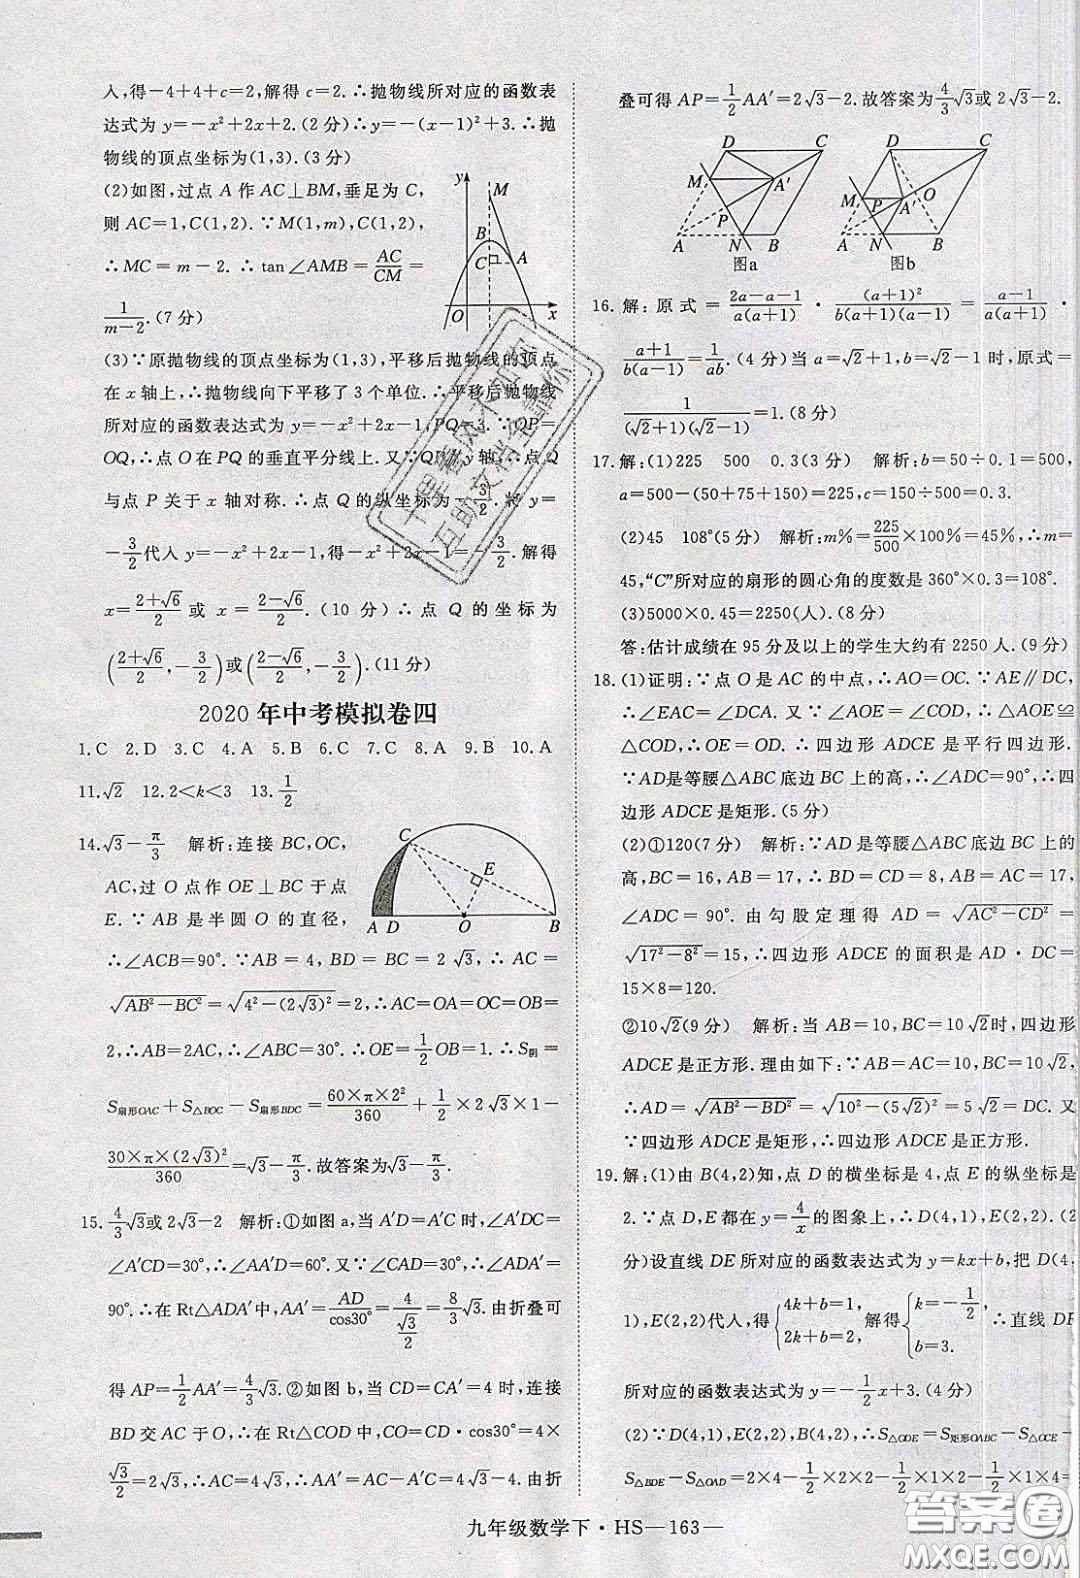 入,得-4+4+c=2,解得 c=2.∴抛物线所对应的函数表
达式为 y=-x²+2x+2.(2分)∴y=-(x-1)²+3.∴抛
物线的顶点坐标为(1,3).(3分)
(2)如图,过点 A 作 AC⊥BM,垂足为 C,
则 AC=1,C(1,2).∵M(1,m),C(1,2),
∴MC=m-2.∴tan∠AMB=AC/CM=
1/(m-2).(7分)
y
M
B
C
A
O
x
(3)∵原抛物线的顶点坐标为(1,3),平移后抛物线的顶点
在 x 轴上,∴抛物线向下平移了3个单位.∴平移后抛物线
所对应的函数表达式为 y=-x²+2x-1,PQ=3.∵OP=
OQ,∴点 O 在 PQ 的垂直平分线上.又∵QP∥y 轴,∴点 Q
与点 P 关于 x 轴对称.∴点 Q 的纵坐标为-3/2.将 y=
-3/2代入 y=-x²+2x-1,得-x²+2x-1=-3/2.解得
x=(2+√6)/2 或 x=(2-√6)/2.(10分)∴点 Q 的坐标为
((2+√6)/2,-3/2)或((2-√6)/2,-3/2).(11分)
2020年中考模拟卷四
1.C 2.D 3.C 4.A 5.B 6.C 7.C 8.A 9.B 10.A
11.√2 12.2<k<3 13.1/2
14.√3-π/3 解析:连接 BC,OC,
AC,过 O 点作 OE⊥BC 于点
E.∵AB 是半圆 O 的直径,
C
E
A D O B
∴∠ACB=90°.∵AB=4,BD=BC=2√3,∴AC=
√(AB²-BC²)=√(4²-(2√3)²)=2,∴AC=OA=OC=OB=
2,∴AB=2AC,∴∠ABC=30°.∴OE=1/2OB=1.∴S阴=
S扇形OAC+S△BOC-S扇形BDC=(60×π×2²)/360+1/2×2√3×1-
(30×π×(2√3)²)/360=√3-π/3.故答案为√3-π/3.
15.4/3√3或2√3-2 解析:①如图 a,当 A′D=A′C 时,∠A′DC=
∠A′CD=30°,∴∠AA′D=60°.又∵∠ADC=120°,∴∠ADA′=
90°.∴在 Rt△ADA′中,AA′=AD/cos30°=4/(√3/2)=8/3√3.由折叠可
得 AP=1/2AA′=4/3√3.②如图 b,当 CD=CA′=4 时,连接
BD 交 AC 于 O,在 Rt△COD 中,CO=CD·cos30°=4×
√3/2=2√3,∴AC=4√3,∴AA′=AC-A′C=4√3-4.由折
叠可得 AP=1/2AA′=2√3-2.故答案为4/3√3或2√3-2.
D C
M A′
P
A N B
图a
D C
M P A′ O
A N B
图b
16.解:原式=(2a-a-1)/(a(a+1))·(a+1)²/(b(a+1)(a-1))=(a-1)/(a(a+1))·
(a+1)/(b(a-1))=1/ab.(4分)当 a=√2+1,b=√2-1时,原式=
1/((√2+1)(√2-1))=1.(8分)
17.解:(1)225 500 0.3(3分) 解析:b=50÷0.1=500,
a=500-(50+75+150)=225,c=150÷500=0.3.
(2)45 108°(5分) 解析:m%=225/500×100%=45%,∴m=
45,“C”所对应的扇形的圆心角的度数是360°×0.3=108°.
(3)5000×0.45=2250(人).(8分)
答:估计成绩在95分及以上的学生大约有2250人.(9分)
18.(1)证明:∵点 O 是 AC 的中点,∴AO=OC.∵AE∥DC,
∴∠EAC=∠DCA.又∵∠AOE=∠COD,∴△AOE≌
△COD,∴OE=OD.∴四边形 ADCE 是平行四边形.
∵AD是等腰△ABC 底边 BC 上的高,∴∠ADC=90°,∴四
边形 ADCE 是矩形.(5分)
(2)①120(7分) 解析:∵AD 是等腰△ABC 底边 BC 上的
高,BC=16,AB=17,∴BD=CD=8,AB=AC=17,
∠ADC=90°.由勾股定理得 AD=√(AC²-CD²)=
√(17²-8²)=15,∴四边形 ADCE 的面积是 AD·DC=
15×8=120.
②10√2(9分) 解析:当 AB=10,BC=10√2时,四边形
ADCE 是正方形.理由如下:∵AB=AC=10,BC=10√2,
∴AD=√(AB²-BD²)=√(10²-(5√2)²)=5√2=DC.又
∵四边形 ADCE 是矩形,∴四边形 ADCE 是正方形.
19.解:(1)由 B(4,2)知,点 D 的横坐标是4,点 E 的纵坐标是
2.∵点 D,E 都在 y=4/x的图象上,∴D(4,1),E(2,2).(2
分)设直线 DE 所对应的函数表达式为 y=kx+b,把 D(4,
1),E(2,2)代入,得{4k+b=1, 2k+b=2.解得{k=-1/2, b=3.∴直线 DE
所对应的函数表达式为 y=-1/2x+3.(4分)
(2)∵D(4,1),E(2,2),B(4,2),∴S△ODE=S矩形OABC-S△OCE-
S△BDE-S△OAD=2×4-1/2×2×2-1/2×2×1-1/2×4×1=
九年级数学下·HS—163—
十里春风不如你
互助文档全靠你
答案圈
MXQE.COM